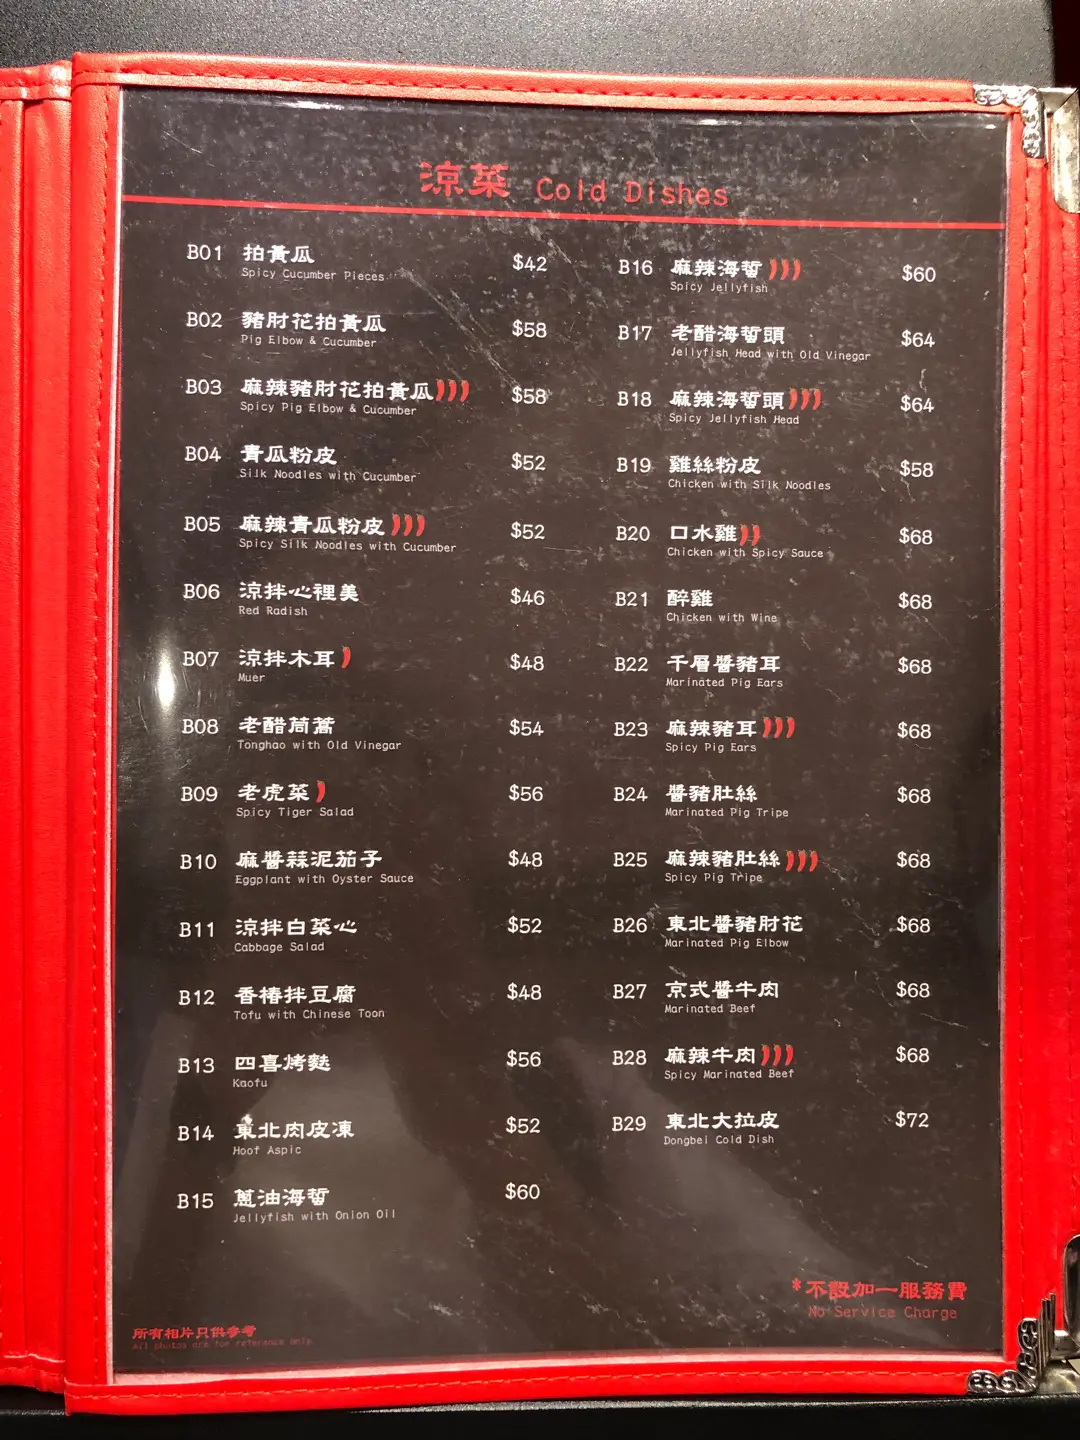 涼菜 Cold Dishes
B01 拍黃瓜 $42
Spicy Cucumber Pieces
B02 豬肘花拍黃瓜 $58
Pig Elbow & Cucumber
B03 麻辣豬肘花拍黃瓜 $58
Spicy Pig Elbow & Cucumber
B04 青瓜粉皮 $52
Silk Noodles with Cucumber
B05 麻辣青瓜粉皮 $52
Spicy Silk Noodles with Cucumber
B06 涼拌心裡美 $46
Red Radish
B07 涼拌木耳 $48
Muer
B08 老醋茼蒿 $54
Tonghao with Old Vinegar
B09 老虎菜 $56
Spicy Tiger Salad
B10 麻醬蒜泥茄子 $48
Eggplant with Oyster Sauce
B11 涼拌白菜心 $52
Cabbage Salad
B12 香椿拌豆腐 $48
Tofu with Chinese Toon
B13 四喜烤麩 $56
Kaofu
B14 東北肉皮凍 $52
Hoof Aspic
B15 蔥油海蜇 $60
Jellyfish with Onion Oil
B16 麻辣海蜇 $60
Spicy Jellyfish
B17 老醋海蜇頭 $64
Jellyfish Head with Old Vinegar
B18 麻辣海蜇頭 $64
Spicy Jellyfish Head
B19 雞絲粉皮 $58
Chicken with Silk Noodles
B20 口水雞 $68
Chicken with Spicy Sauce
B21 醉雞 $68
Chicken with Wine
B22 千層醬豬耳 $68
Marinated Pig Ears
B23 麻辣豬耳 $68
Spicy Pig Ears
B24 醬豬肚絲 $68
Marinated Pig Tripe
B25 麻辣豬肚絲 $68
Spicy Pig Tripe
B26 東北醬豬肘花 $68
Marinated Pig Elbow
B27 京式醬牛肉 $68
Marinated Beef
B28 麻辣牛肉 $68
Spicy Marinated Beef
B29 東北大拉皮 $72
Dongbei Cold Dish
*不設加一服務費
No Service Charge
所有相片只供參考
All photos are for reference only